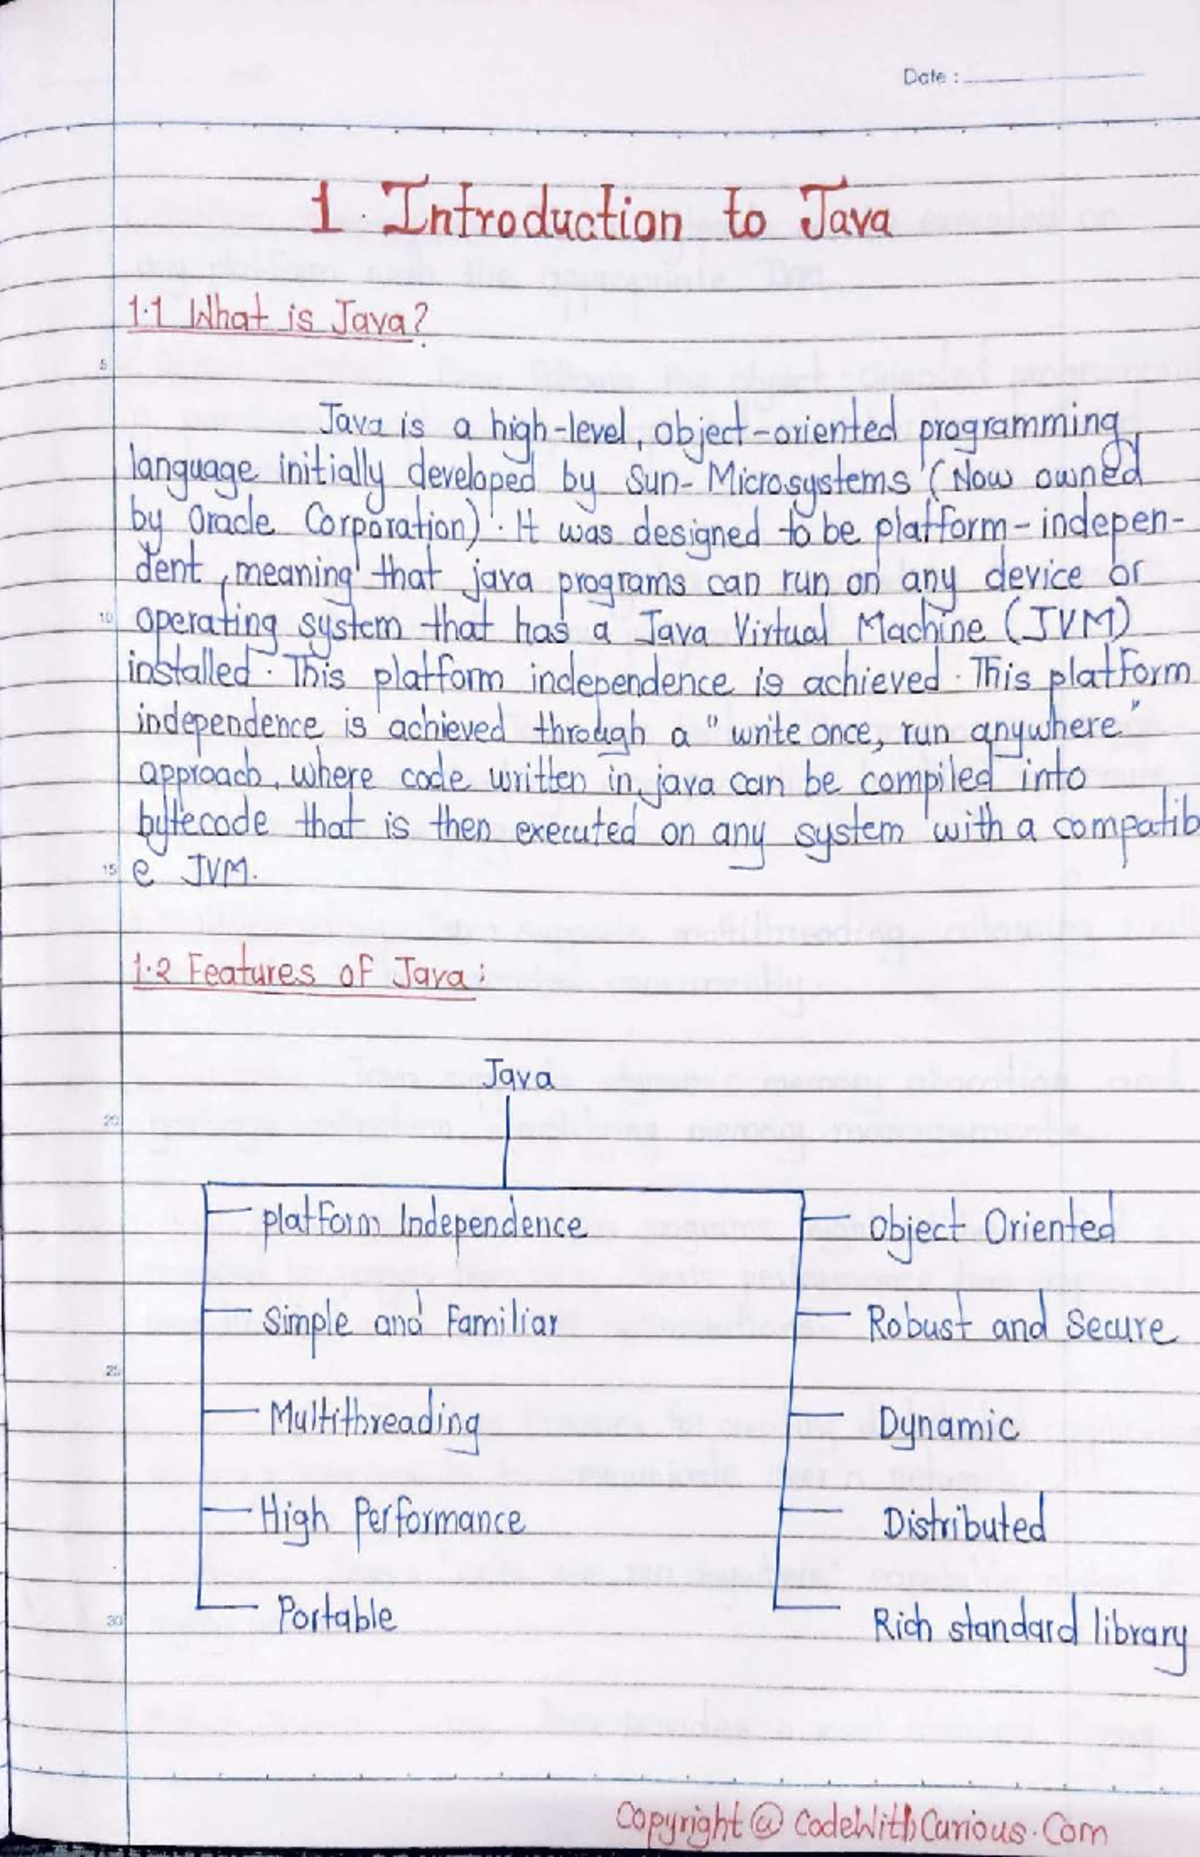 Date :
1. Introduction to Java
1.1 What is Java?
5
Java is a high-level, object-oriented programming
language initially developed by Sun-Microsystems (Now owned
by Oracle Corporation). It was designed to be platform-indepen-
dent, meaning that java programs can run on any device or
10 operating system that has a Java Virtual Machine (JVM)
installed. This platform independence is achieved. This platform
independence is achieved through a "write once, run anywhere"
approach, where code written in java can be compiled into
bytecode that is then executed on any system with a compatib
15 e JVM.
1.2 Features of Java:
Java
20
platform Independence
Simple and Familiar
25
Multithreading
High Performance
30 Portable
Object Oriented
Robust and Secure
Dynamic
Distributed
Rich standard library
Copyright @ CodeWithCurious.Com